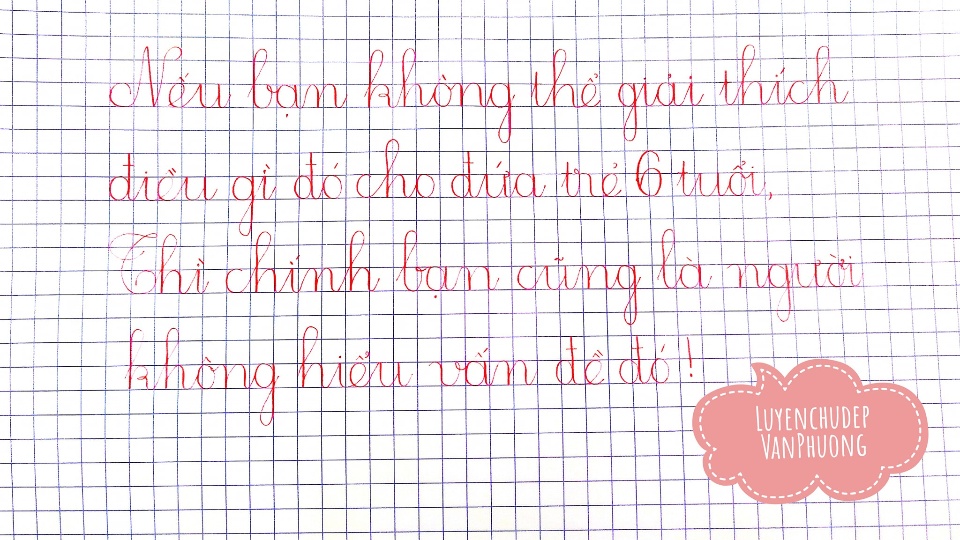 Nếu bạn không thể giải thích
điều gì đó cho đứa trẻ 6 tuổi,
Thì chính bạn cũng là người
không hiểu vấn đề đó!
LUYENCHUDEP
VANPHUONG